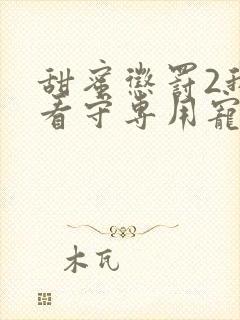 甜蜜懲罰2我
看守專用寵
木瓦